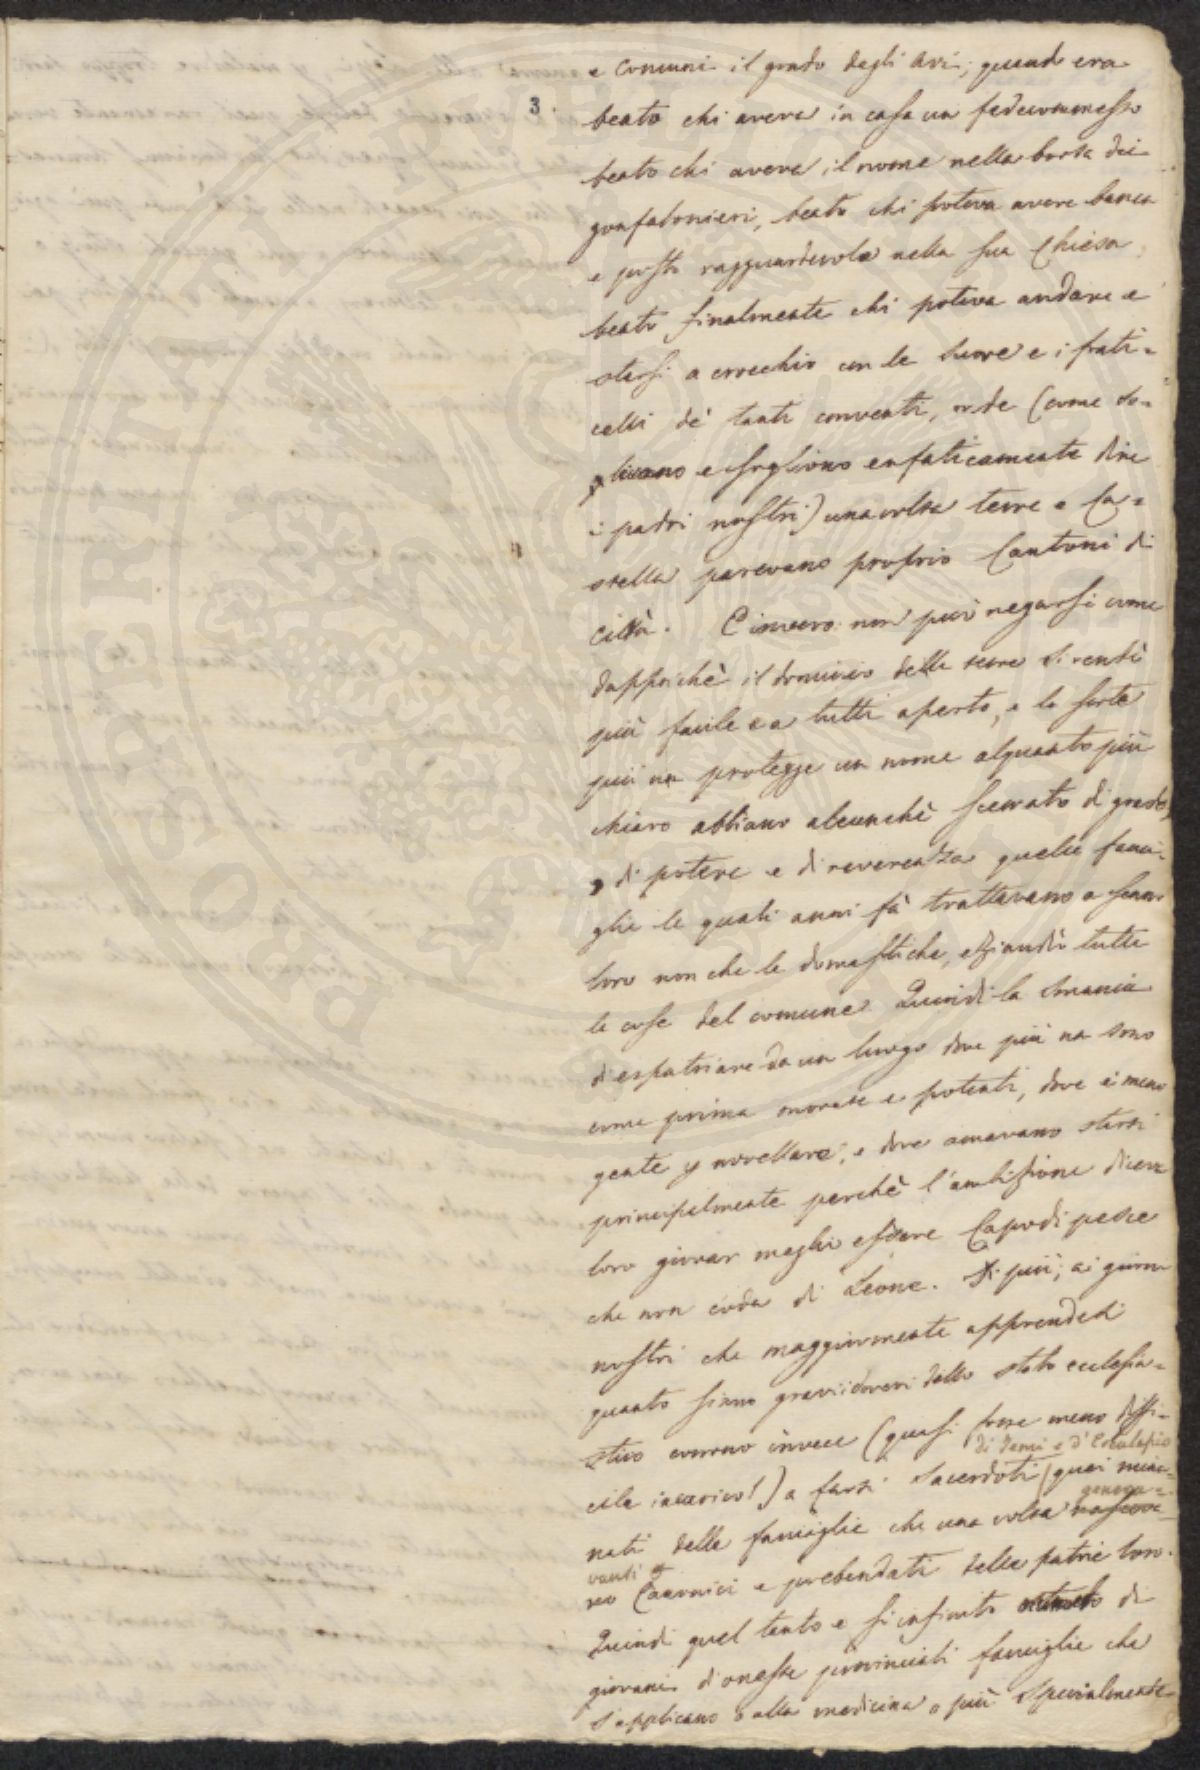 3.
e Comuni il grado degli Avi; quando era
beato chi aveva in casa un fedecommesso
beato chi aveva il nome nella borsa dei
gonfalonieri, beato chi poteva avere banca
e posto ragguardevole nella sua Chiesa
beato finalmente chi poteva andare e
starsi a crocchio con le suore e i frati=
celli de' tanti conventi, onde (come so=
levano e sogliono enfaticamente dire
i padri nostri) una volta terre e Ca=
stella parevano proprio Cantoni di
città. E invero non può negarsi come
dappoichè il dominio delle terre si rendè
più facile e a tutti aperto, e la sorte
più non protegge un nome alquanto più
chiaro abbiano alcunchè scemato di grado,
di potere e di reverenza quelle fami=
glie le quali anni fà trattavano a senno
loro non che le domestiche, eziandio tutte
le cose del comune. Quindi la smania
d'espatriare da un luogo dove più non sono
come prima onorate e potenti, dove è meno
gente p novellare, e dove amavano starsi
principalmente perchè l'ambizione diceva
loro giovar meglio essere Capo di pesce
che non coda di Leone. Di più; ai giorni
nostri che maggiormente apprendesi
quanto sieno gravi i doveri dello stato ecclesia=
stico corrono invece (quasi fosse meno diffi=
di Temi e d'Esculapio
cile incarico!) a farsi sacerdoti quei
genera=
nati delle famiglie che una volta
vansi
Canonici e prebendati delle patrie loro.
Quindi quel tanto e sì infinito di
giovani d'oneste provinciali famiglie che
s'applicano o alla medicina o più specialmente